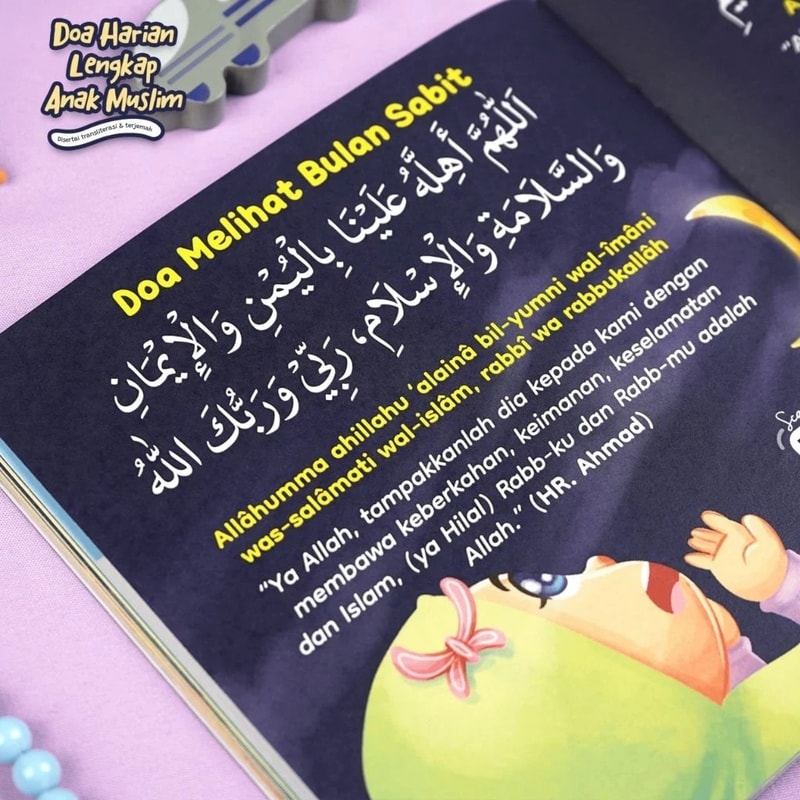 Doa Harian
Lengkap
Anak Muslim
Disertai transliterasi & terjemah
Doa Melihat Bulan Sabit
اَللّٰهُمَّ أَهِلَّهُ عَلَيْنَا بِالْيُمْنِ وَالْإِيْمَانِ
وَالسَّلَامَةِ وَالْإِسْلَامِ، رَبِّيْ وَرَبُّكَ اللّٰهُ
Allâhumma ahillahu 'alainâ bil-yumni wal-îmâni
was-salâmati wal-islâm, rabbî wa rabbukallâh
"Ya Allah, tampakkanlah dia kepada kami dengan
membawa keberkahan, keimanan, keselamatan
dan Islam, (ya Hilal) Rabb-ku dan Rabb-mu adalah
Allah." (HR. Ahmad)